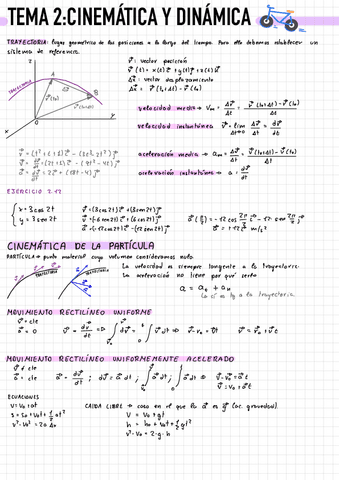 TEMA 2: CINEMÁTICA Y DINÁMICA
TRAYECTORIA: lugar geométrico de las posiciones a lo largo del tiempo. Para ello debemos establecer un
sistema de referencia.
r⃗: vector posición
r⃗(t) = x(t)i⃗ + y(t)j⃗ + z(t)k⃗
Δr⃗: vector desplazamiento
Δr⃗ = r⃗(t₀+Δt) - r⃗(t₀)
TRAYECTORIA
velocidad media → vₘ = Δr⃗/Δt = (r⃗(t₀+Δt) - r⃗(t₀))/Δt
velocidad instantánea v⃗ = lim Δt→0 Δr⃗/Δt = dr⃗/dt
aceleración media → aₘ = Δv⃗/Δt = (v⃗(t₀+Δt) - v⃗(t₀))/Δt
aceleración instantánea → a = dv⃗/dt
EJERCICIO 2.12
x = 3cos2t
y = 3sen2t
r⃗ = (3cos2t)i⃗ + (3sen2t)j⃗
v⃗ = (-6sen2t)i⃗ + (6cos2t)j⃗
a⃗ = (-12cos2t)i⃗ - (12sen2t)j⃗
CINEMÁTICA DE LA PARTÍCULA
PARTÍCULA → punto material cuyo volumen consideramos nulo.
TRAYECTORIA
TRAYECTORIA
La velocidad es siempre tangente a la trayectoria.
La aceleración no tiene por qué serlo
a = aₜ + aₙ
MOVIMIENTO RECTILÍNEO UNIFORME
v⃗ = cte
a⃗ = 0
MOVIMIENTO RECTILÍNEO UNIFORMEMENTE ACELERADO
v⃗ ≠ cte
a⃗ = cte
a⃗ = dv⃗/dt ; dv⃗ = a⃗ dt ; ∫dv⃗ = ∫a⃗ dt ⇒ v⃗ - v⃗₀ = a⃗t
v⃗ = v⃗₀ + a⃗t
ECUACIONES
V = V₀ + at
s = s₀ + V₀t + 1/2 at²
V² - V₀² = 2aΔs
CAÍDA LIBRE → caso en el que la a⃗ es g⃗ (ac. gravedad).
V = V₀ + gt
h = h₀ + V₀t + 1/2 gt²
V² - V₀ = 2·g·h